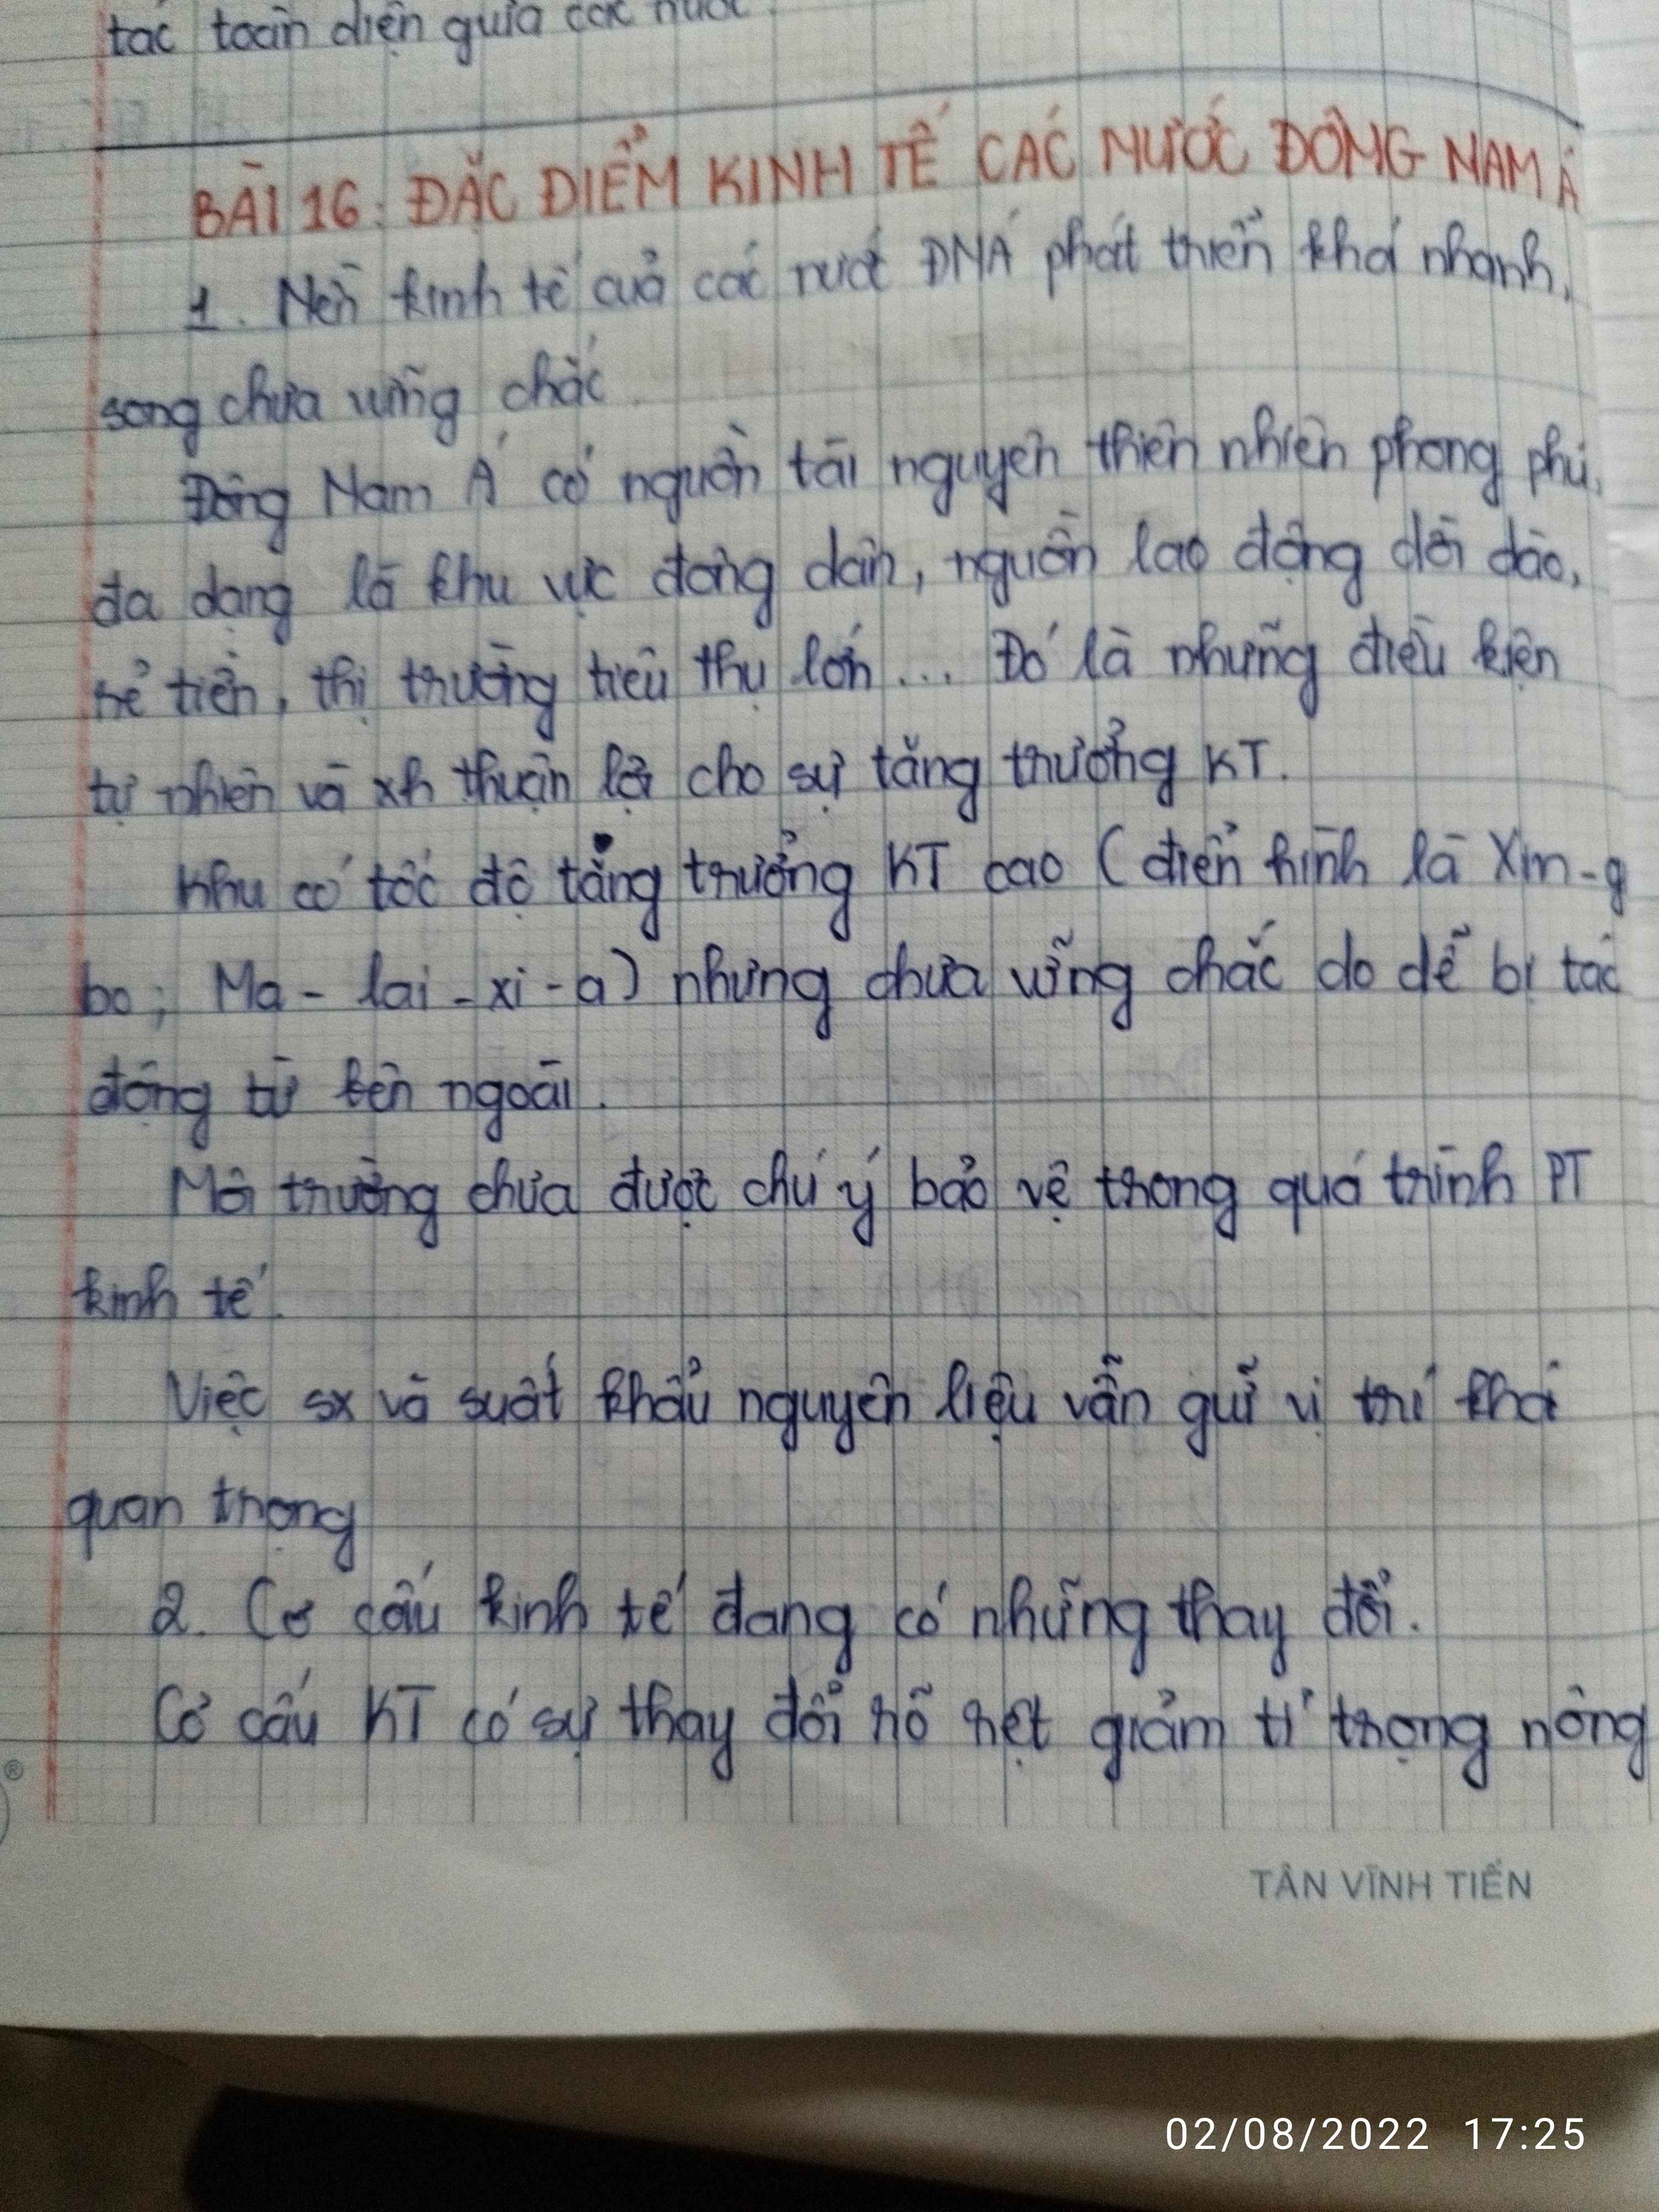 tác toàn diện giữa các nước.
BÀI 16: ĐẶC ĐIỂM KINH TẾ CÁC NƯỚC ĐÔNG NAM Á
1. Nền kinh tế của các nước ĐNÁ phát triển khá nhanh,
song chưa vững chắc.
Đông Nam Á có nguồn tài nguyên thiên nhiên phong phú,
đa dạng là khu vực đông dân, nguồn lao động dồi dào,
rẻ tiền, thị trường tiêu thụ lớn... Đó là những điều kiện
tự nhiên và xh thuận lợi cho sự tăng trưởng KT.
Khu có tốc độ tăng trưởng KT cao (điển hình là Xin-g
bo; Ma-lai-xi-a) nhưng chưa vững chắc do dễ bị tác
động từ bên ngoài.
Môi trường chưa được chú ý bảo vệ trong quá trình PT
kinh tế.
Việc sx và suất khẩu nguyên liệu vẫn giữ vị trí khá
quan trọng
2. Cơ cấu kinh tế đang có những thay đổi.
Cơ cấu KT có sự thay đổi rõ rệt giảm tỉ trọng nông
®
TÂN VĨNH TIẾN
02/08/2022 17:25